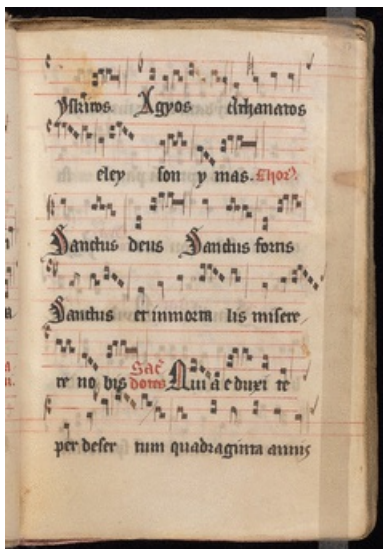 yskiros Agyos athanatos
eley son y mas. Chor9.
Sanctus deus Sanctus fortis
Sanctus et inmorta lis misere
re no bis Sac̄dotes Quia eduxi te
per deser tum quadraginta annis